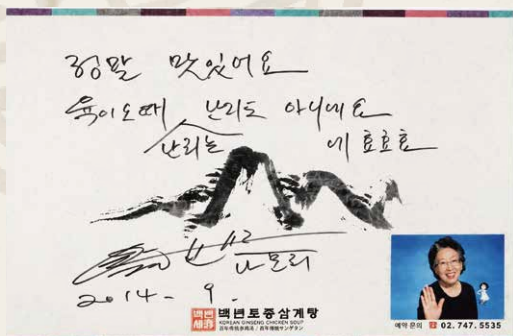 정말 맛있어요
육이오때 난리도 아니네요
난리는 에 효효효
나모리
2014 - 9.
백년
백년토종삼계탕
KOREAN GINSENG CHICKEN SOUP
예약 문의 ☎ 02. 747. 5535